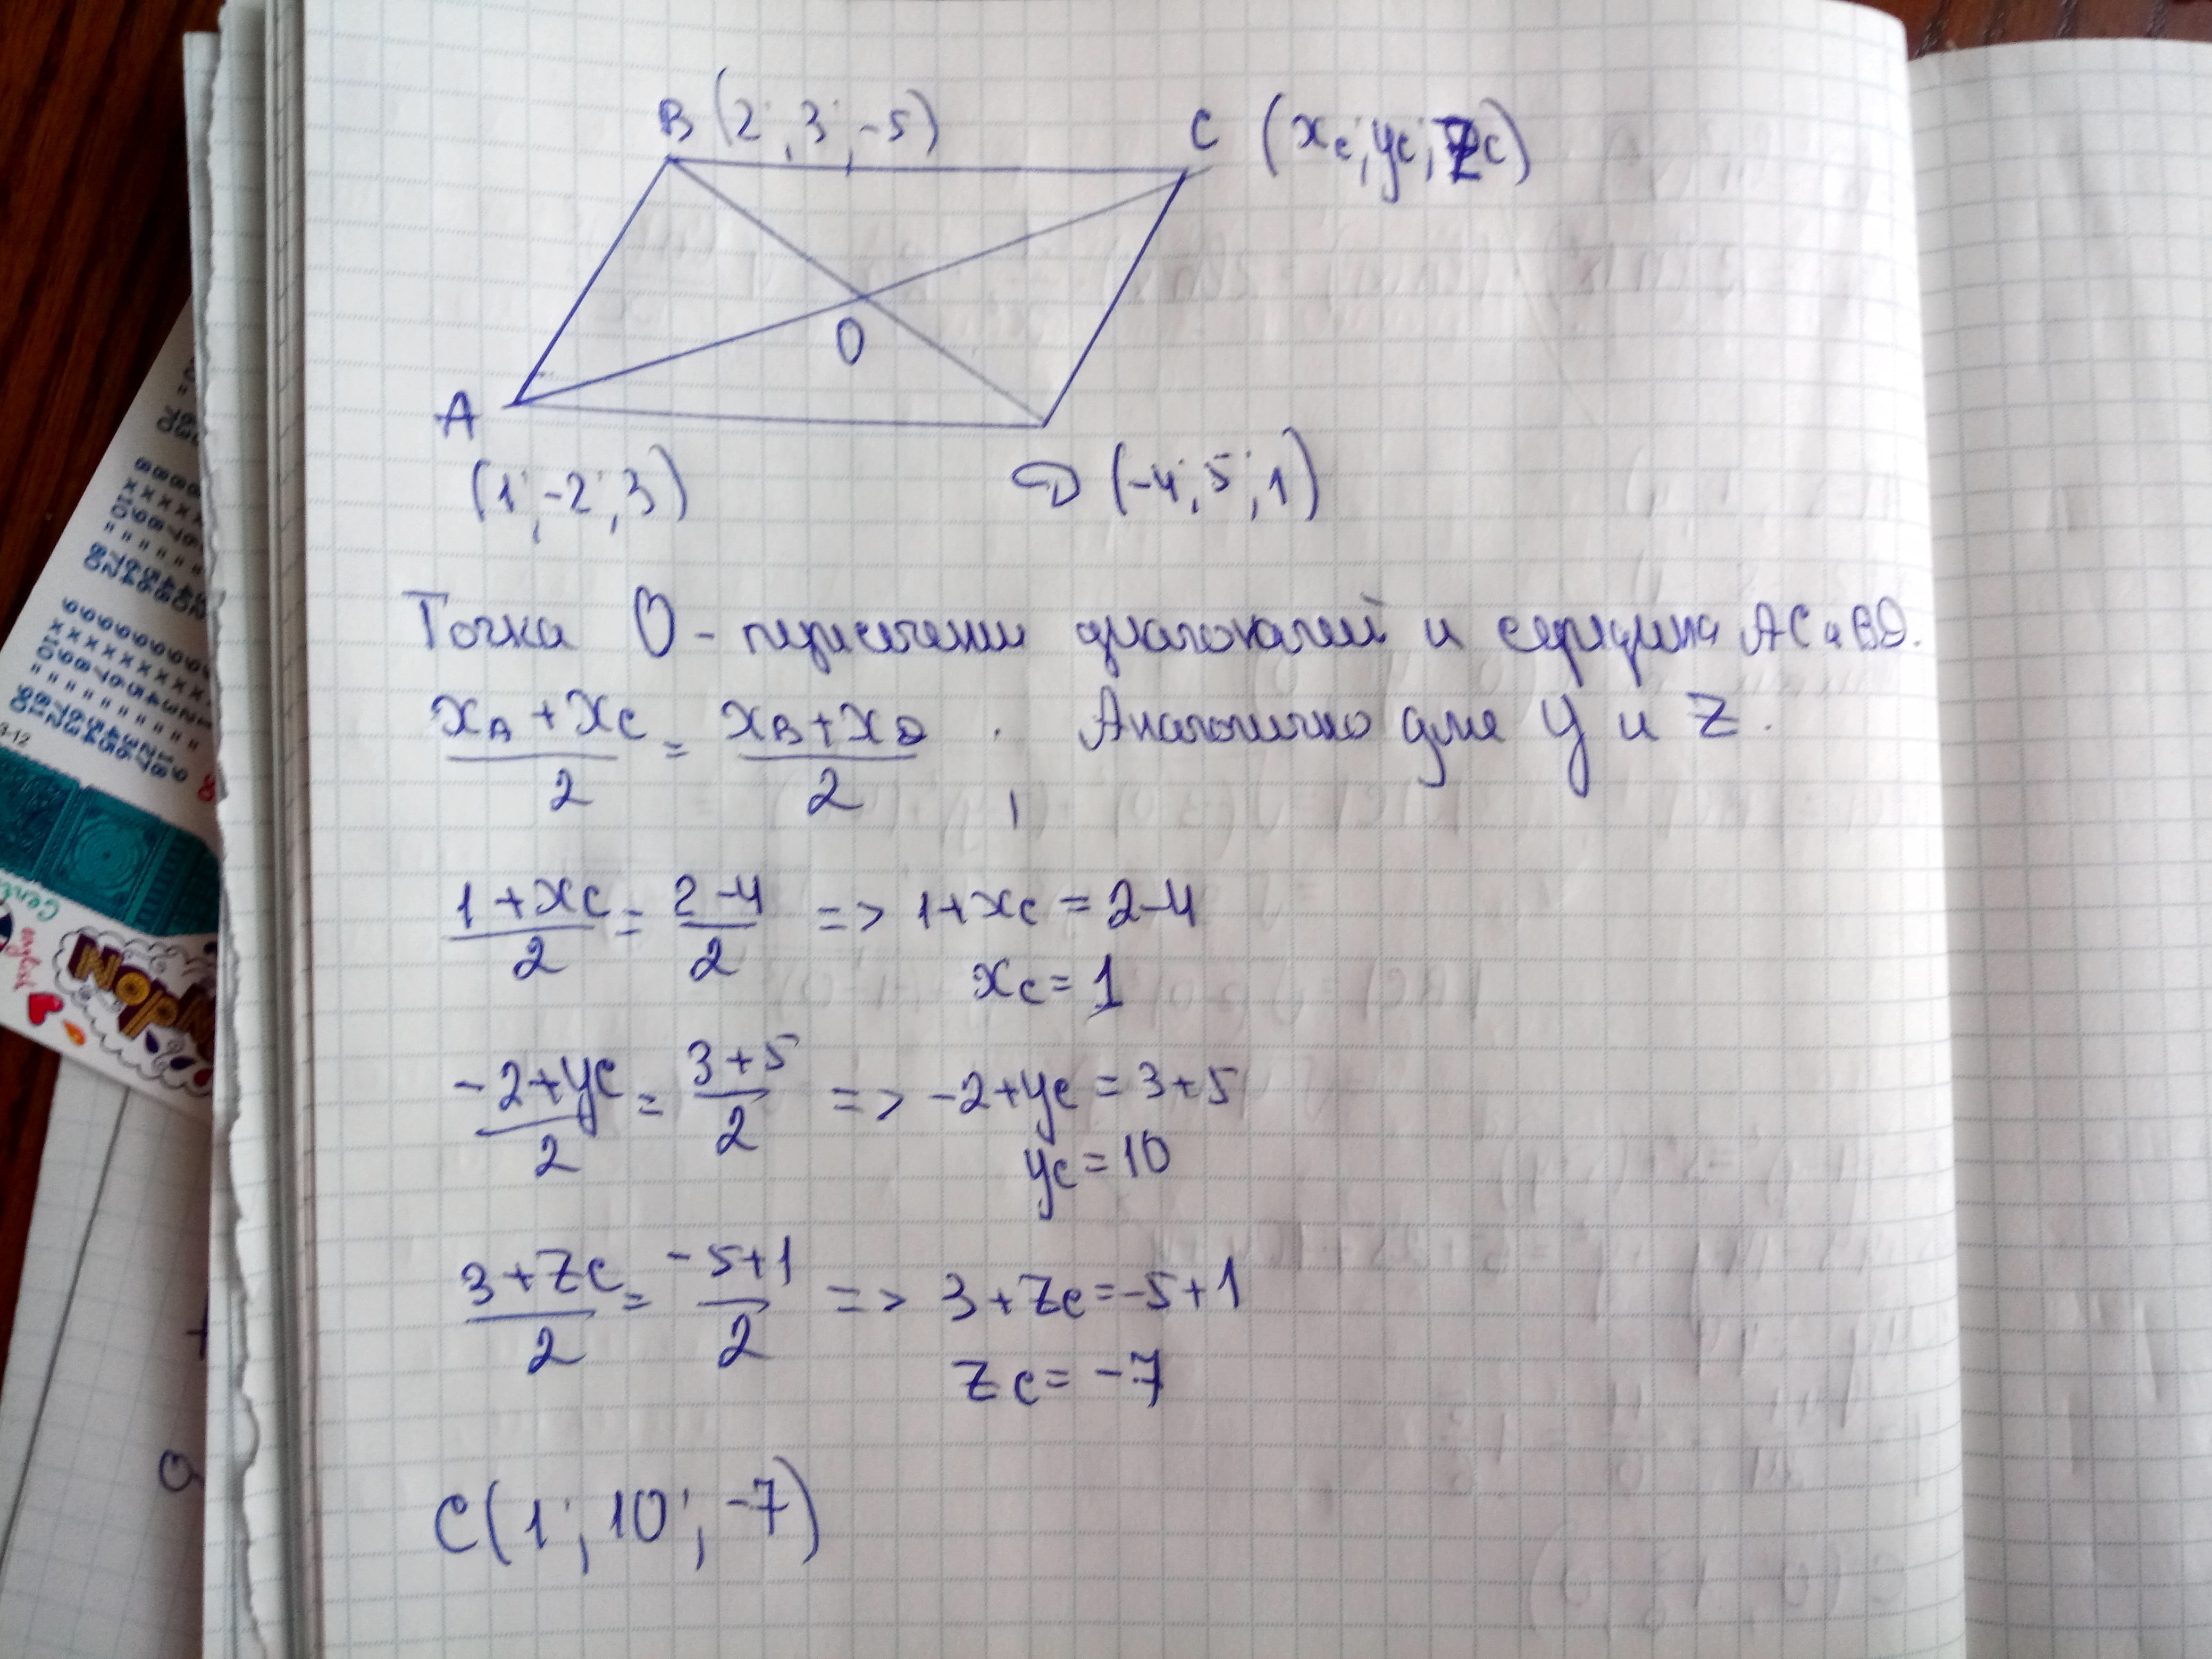 B (2; 3; -5)
C (xc; yc; zc)
O
A
(1; -2; 3)
D (-4; 5; 1)
Точка O - пересечении диагоналей и середина AC и BD.
xA + xC / 2 = xB + xD / 2 . Аналогично для y и z.
1 + xc / 2 = 2 - 4 / 2 => 1 + xc = 2 - 4
xc = 1
-2 + yc / 2 = 3 + 5 / 2 => -2 + yc = 3 + 5
yc = 10
3 + zc / 2 = -5 + 1 / 2 => 3 + zc = -5 + 1
zc = -7
C (1; 10; -7)